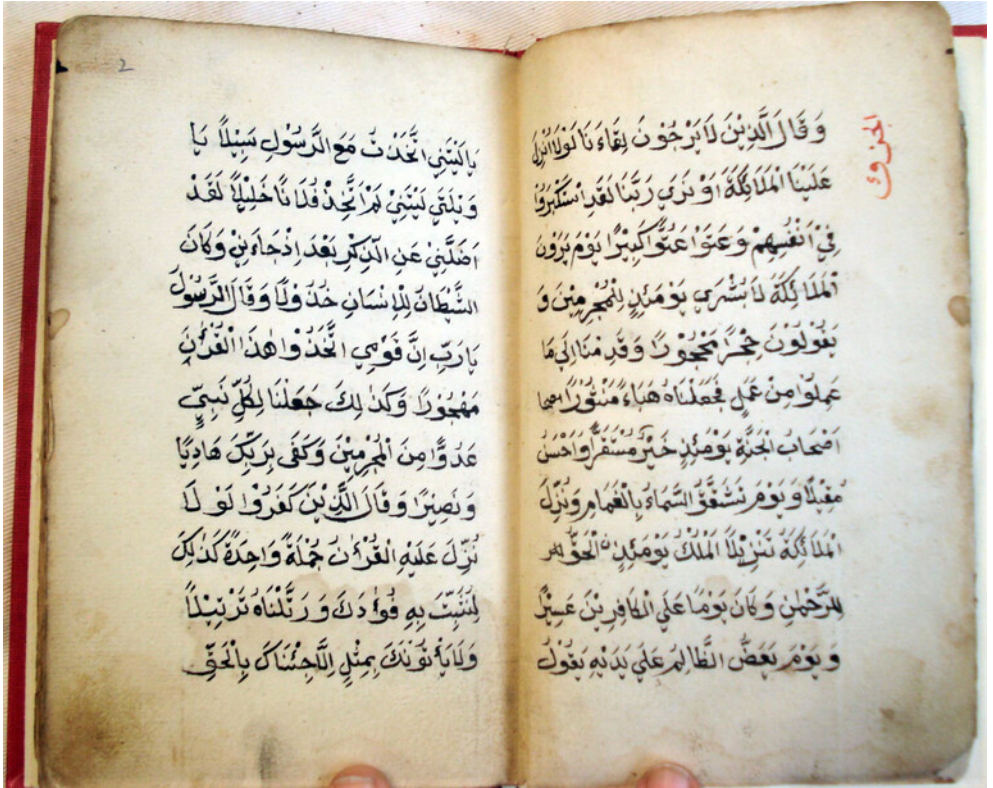 الجزوك
وَقَالَ الَّذِيْنَ لَا يَرْجُوْنَ لِقَاءَنَا لَوْلَا اُنْزِلَ
عَلَيْنَا الْمَلَائِكَةُ اَوْ نَرٰي رَبَّنَا لَقَدِ اسْتَكْبَرُوْا
فِيْ اَنْفُسِهِمْ وَعَتَوْا عُتُوًّا كَبِيْرًا يَوْمَ يَرَوْنَ
الْمَلَائِكَةَ لَا بُشْرٰي يَوْمَئِذٍ لِلْمُجْرِمِيْنَ وَ
يَقُوْلُوْنَ حِجْرًا مَحْجُوْرًا وَقَدِمْنَا اِلٰي مَا
عَمِلُوْا مِنْ عَمَلٍ فَجَعَلْنَاهُ هَبَاءً مَنْثُوْرًا
اَصْحَابُ الْجَنَّةِ يَوْمَئِذٍ خَيْرٌ مُسْتَقَرًّا وَاَحْسَنُ
مَقِيْلًا وَيَوْمَ تَشَقَّقُ السَّمَاءُ بِالْغَمَامِ وَنُزِّلَ
الْمَلَائِكَةُ تَنْزِيْلًا اَلْمُلْكُ يَوْمَئِذٍ الْحَقُّ
لِلرَّحْمٰنِ وَكَانَ يَوْمًا عَلَي الْكَافِرِيْنَ عَسِيْرًا
وَيَوْمَ يَعَضُّ الظَّالِمُ عَلٰي يَدَيْهِ يَقُوْلُ
2
يَا لَيْتَنِي اتَّخَذْتُ مَعَ الرَّسُوْلِ سَبِيْلًا يَا
وَيْلَتٰي لَيْتَنِيْ لَمْ اَتَّخِذْ فُلَانًا خَلِيْلًا لَقَدْ
اَضَلَّنِيْ عَنِ الذِّكْرِ بَعْدَ اِذْ جَاءَنِيْ وَكَانَ
الشَّيْطَانُ لِلْاِنْسَانِ خَذُوْلًا وَقَالَ الرَّسُوْلُ
يَارَبِّ اِنَّ قَوْمِي اتَّخَذُوْا هٰذَا الْقُرْاٰنَ
مَهْجُوْرًا وَكَذٰلِكَ جَعَلْنَا لِكُلِّ نَبِيٍّ
عَدُوًّا مِنَ الْمُجْرِمِيْنَ وَكَفٰي بِرَبِّكَ هَادِيًا
وَنَصِيْرًا وَقَالَ الَّذِيْنَ كَفَرُوْا لَوْلَا
نُزِّلَ عَلَيْهِ الْقُرْاٰنُ جُمْلَةً وَاحِدَةً كَذٰلِكَ
لِنُثَبِّتَ بِهِ فُؤَادَكَ وَرَتَّلْنَاهُ تَرْتِيْلًا
وَلَا يَأْتُوْنَكَ بِمَثَلٍ اِلَّا جِئْنَاكَ بِالْحَقِّ